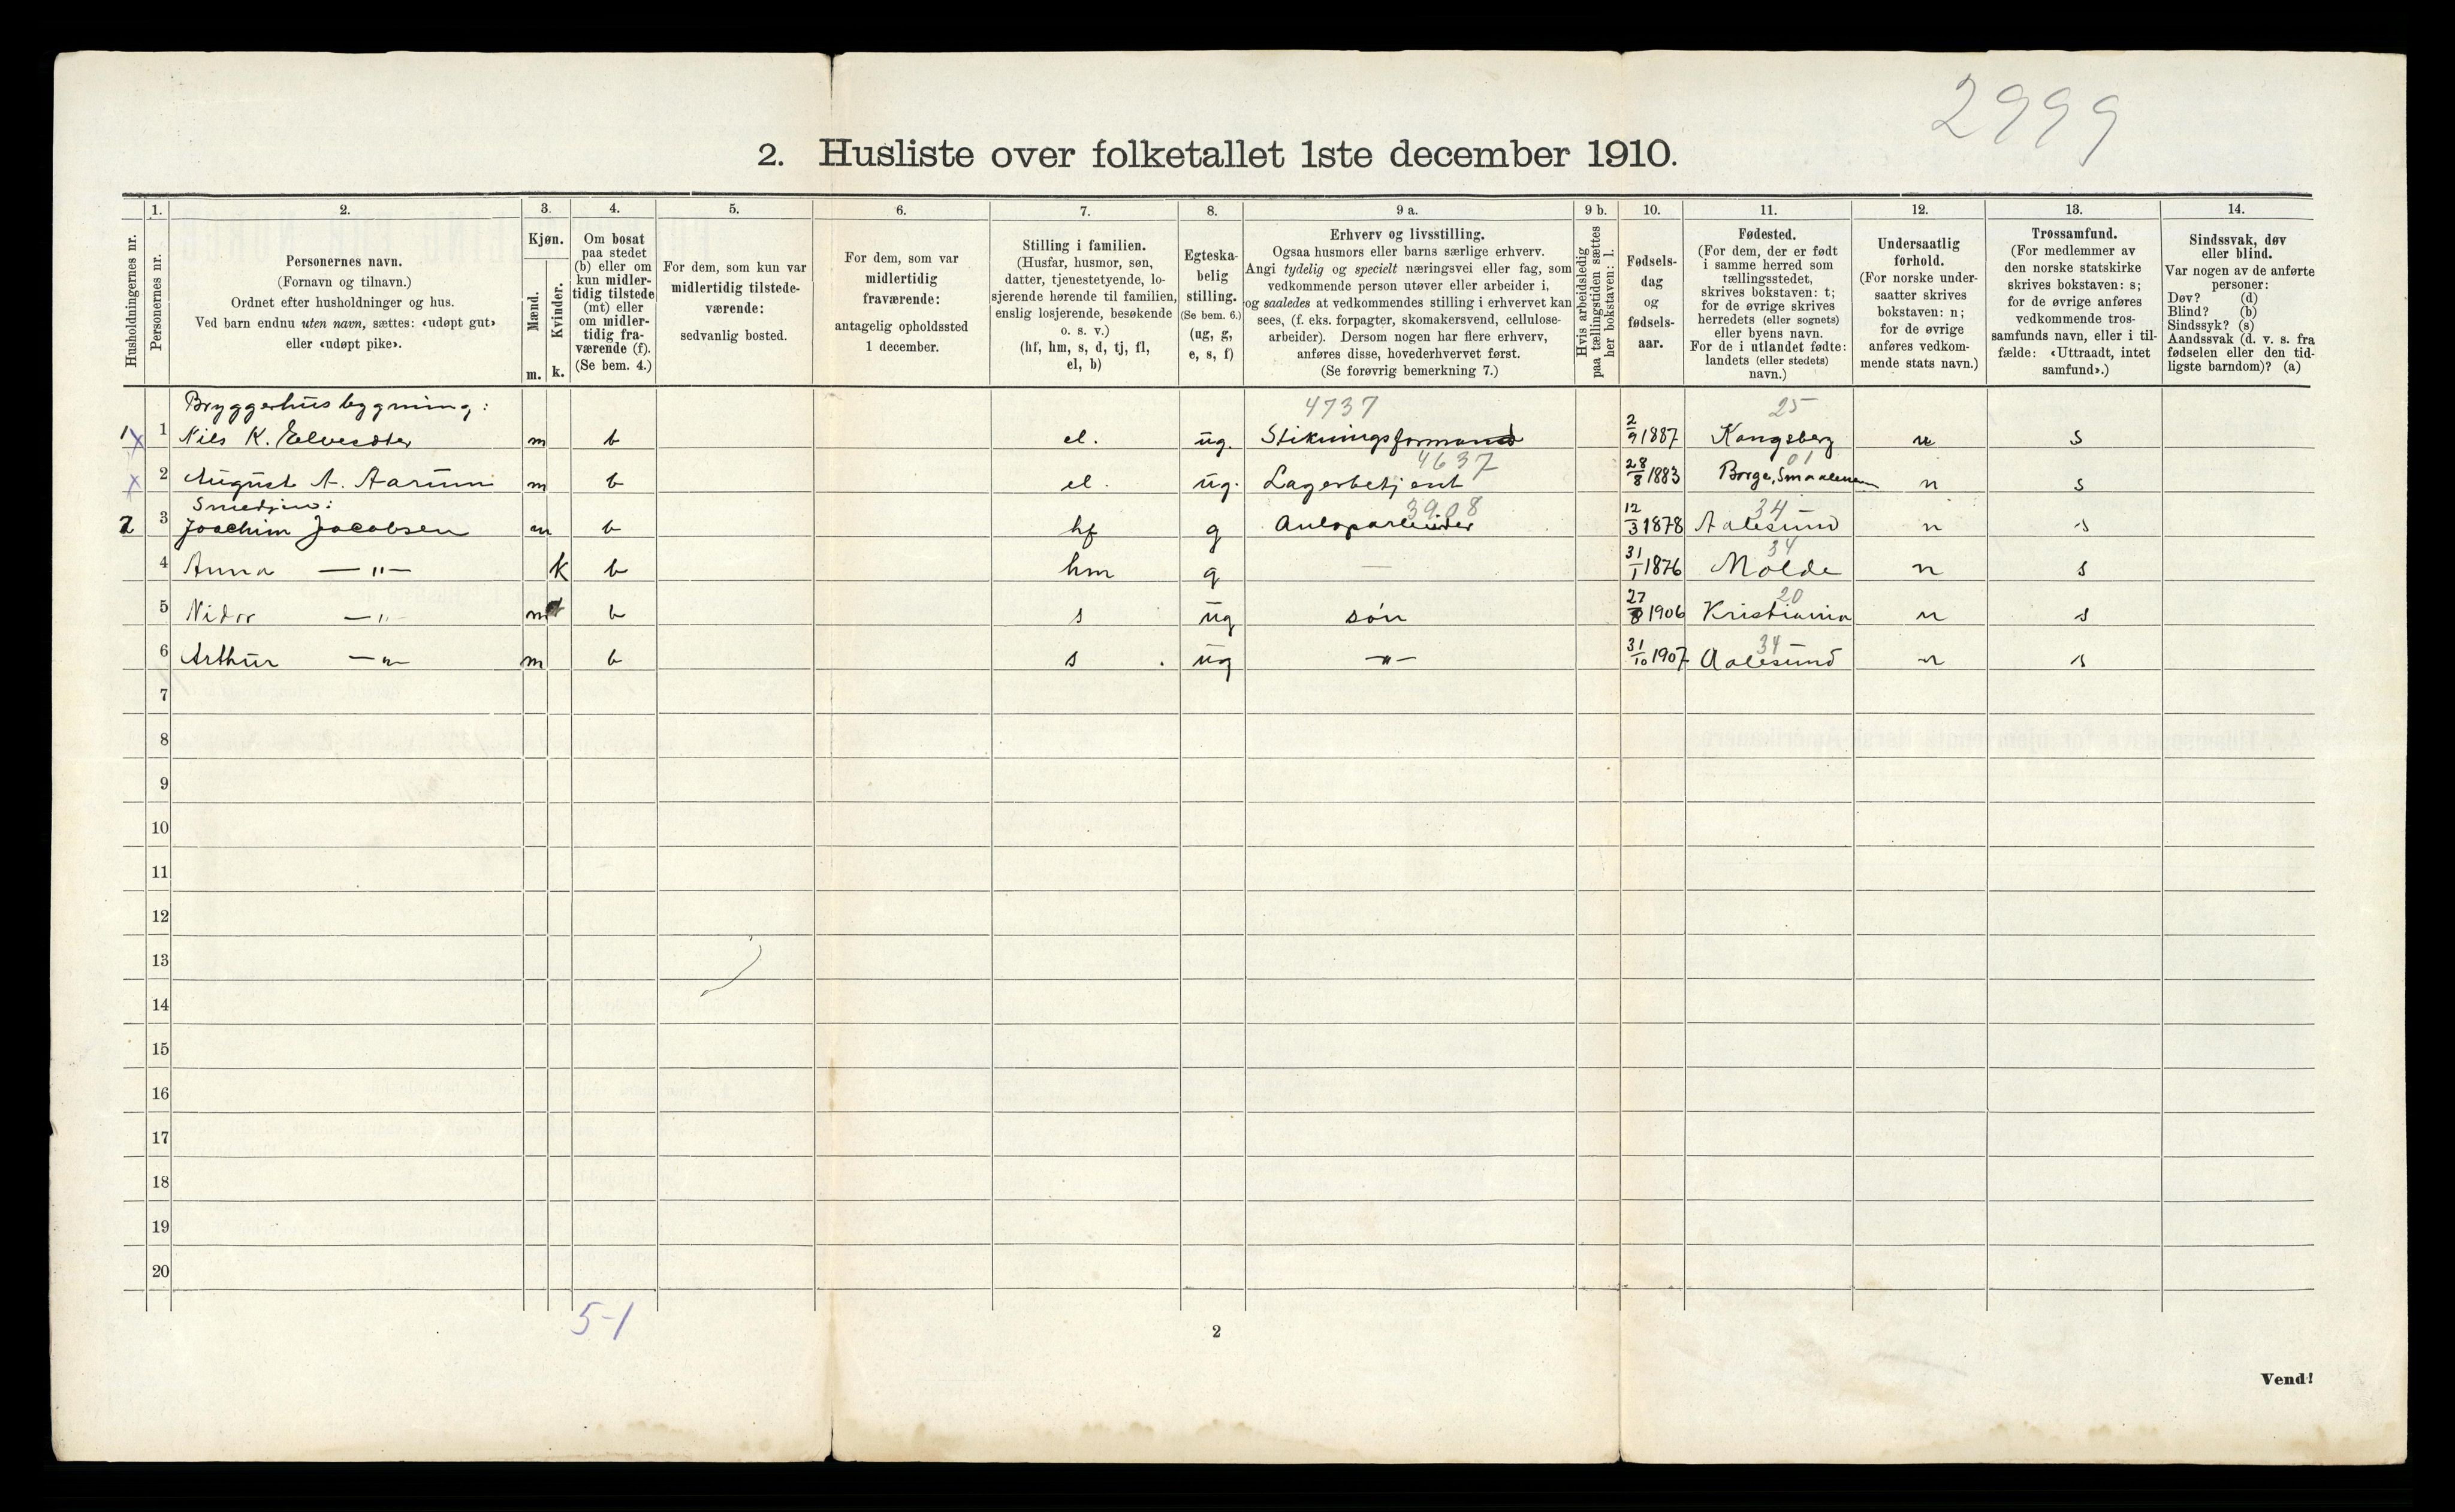 2999
2. Husliste over folketallet 1ste december 1910.
Husholdningernes nr.
1. Personernes nr.
2. Personernes navn.
(Fornavn og tilnavn.)
Ordnet efter husholdninger og hus.
Ved barn endnu uten navn, sættes: «udøpt gut»
eller «udøpt pike».
3. Kjøn.
Mænd. m.
Kvinder. k.
4. Om bosat
paa stedet
(b) eller om
kun midler-
tidig tilstede
(mt) eller
om midler-
tidig fra-
værende (f).
(Se bem. 4.)
5. For dem, som kun var
midlertidig tilstede-
værende:
sedvanlig bosted.
6. For dem, som var
midlertidig
fraværende:
antagelig opholdssted
1 december.
7. Stilling i familien.
(Husfar, husmor, søn,
datter, tjenestetyende, lo-
sjerende hørende til familien,
enslig losjerende, besøkende
o. s. v.)
(hf, hm, s, d, tj, fl,
el, b)
8. Egteska-
belig
stilling.
(Se bem. 6.)
(ug, g,
e, s, f)
9 a. Erhverv og livsstilling.
Ogsaa husmors eller barns særlige erhverv.
Angi tydelig og specielt næringsvei eller fag, som
vedkommende person utøver eller arbeider i,
og saaledes at vedkommendes stilling i erhvervet kan
sees, (f. eks. forpagter, skomakersvend, cellulose-
arbeider). Dersom nogen har flere erhverv,
anføres disse, hovederhvervet først.
(Se forøvrig bemerkning 7.)
9 b. Hvis arbeidsledig
paa tællingstiden sættes
her bokstaven: l.
10. Fødsels-
dag
og
fødsels-
aar.
11. Fødested.
(For dem, der er født
i samme herred som
tællingsstedet,
skrives bokstaven: t;
for de øvrige skrives
herredets (eller sognets)
eller byens navn.
For de i utlandet fødte:
landets (eller stedets)
navn.)
12. Undersaatlig
forhold.
(For norske under-
saatter skrives
bokstaven: n;
for de øvrige
anføres vedkom-
mende stats navn.)
13. Trossamfund.
(For medlemmer av
den norske statskirke
skrives bokstaven: s;
for de øvrige anføres
vedkommende tros-
samfunds navn, eller i til-
fælde: «Uttraadt, intet
samfund».)
14. Sindssvak, døv
eller blind.
Var nogen av de anførte
personer:
Døv? (d)
Blind? (b)
Sindssyk? (s)
Aandssvak (d. v. s. fra
fødselen eller den tid-
ligste barndom)? (a)
Bryggerhusbygning: 4737 25
1 x 1 Nils K. m b el. ug. Stikningsformand 2/9 1887 Kongsberg n s
4637 01
x 2 August A. Aarum m b el. ug. Lagerbetjent 28/8 1883 Borge, Smaalenene n s
Smedjen: 3908 34
2 3 Joachim Jacobsen m b hf g 12/3 1878 Aalesund n s
34
4 Anna —"— k b hm g — 31/1 1876 Molde n s
20
5 —"— m b s ug søn 27/8 1906 Kristiania n s
34
6 Arthur —"— m b s ug —"— 31/10 1907 Aalesund n s
7
8
9
10
11
12
13
14
15
16
17
18
19
20
5-1
2
Vend!